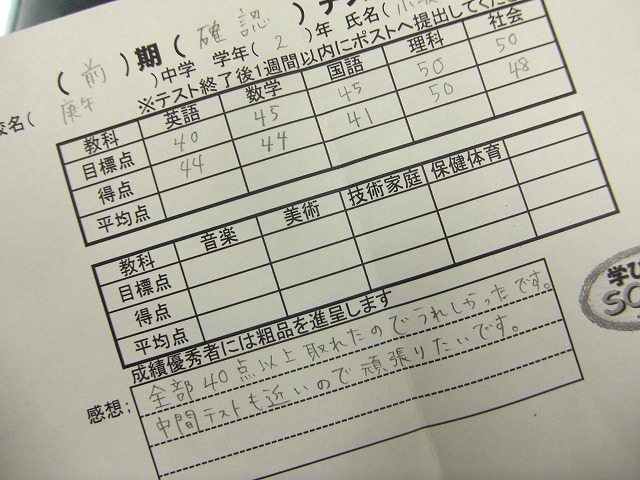 ( 前 ) 期 ( 確認 ) テス
校名( 庚午 )中学 学年( 2 )年 氏名(
※テスト終了後1週間以内にポストへ提出してくださ
教科 英語 数学 国語 理科 社会
目標点 40 45 45 50 50
得点 44 44 41 50 48
平均点
教科 音楽 美術 技術家庭 保健体育
目標点
得点
平均点
成績優秀者には粗品を進呈します
感想; 全部40点以上取れたのでうれしかったです。
中間テストも近いので頑張りたいです。
学び